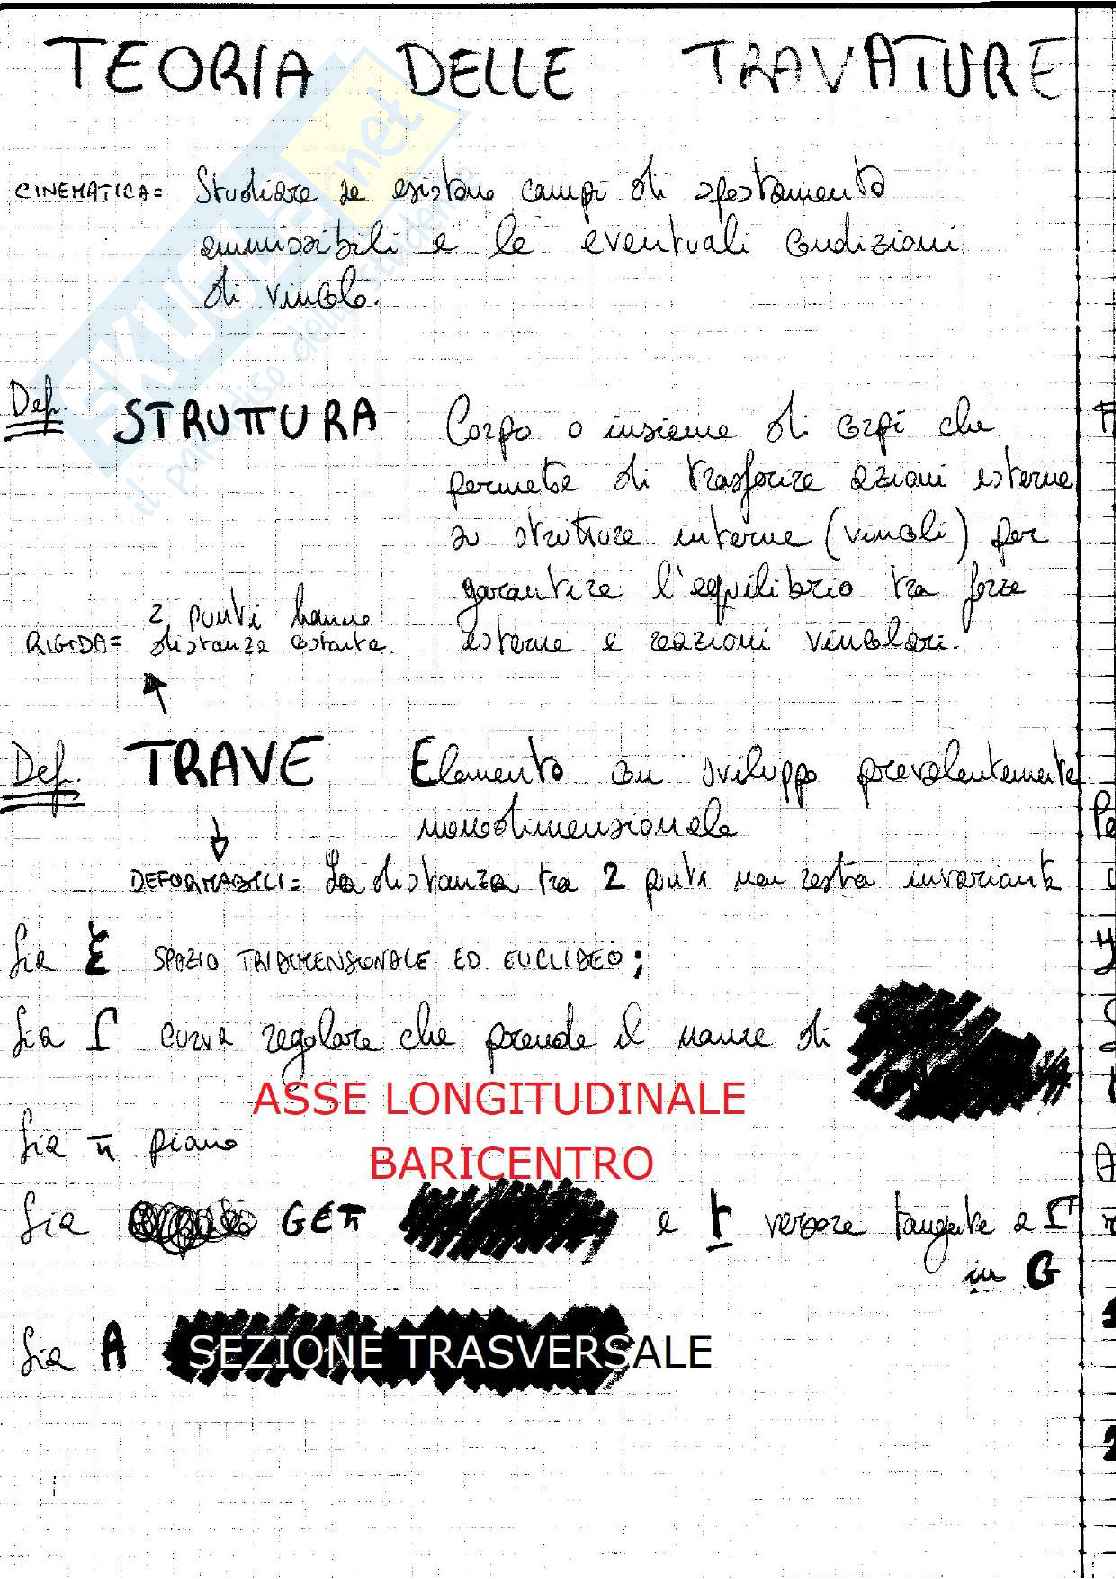 TEORIA DELLE TRAVATURE
CINEMATICA = Studiare se esistono campi di spostamento
ammissibili e le eventuali condizioni
di vincolo.
Def. STRUTTURA Corpo o insieme di corpi che
permette di trasferire azioni esterne
su strutture interne (vincoli) per
garantire l'equilibrio tra forze
esterne e reazioni vincolari.
2 punti hanno
RIGIDA = distanza costante.
Def. TRAVE Elemento con sviluppo prevalentemente
monodimensionale
DEFORMABILI = La distanza tra 2 punti non resta invariante
Sia E SPAZIO TRIDIMENSIONALE ED EUCLIDEO;
Sia Γ curva regolare che prende il nome di
ASSE LONGITUDINALE
Sia π piano
BARICENTRO
Sia G∈π e t versore tangente a Γ
in G
Sia A SEZIONE TRASVERSALE